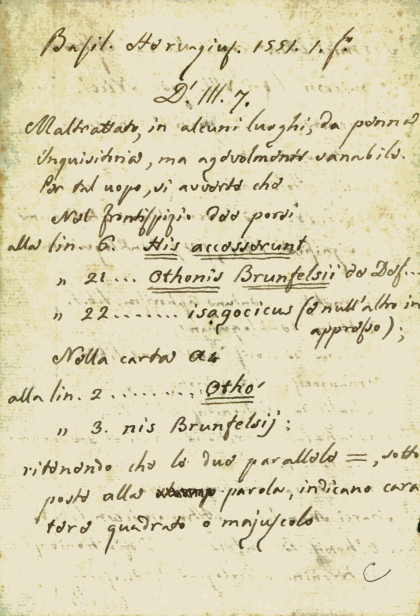 Basil. Hervagius. 1551. 1. f.º
D. III. 7.
Maltrattato, in alcuni luoghi, da penna
inquisitoria, ma agevolmente sanabile.
Per tal uopo, si avverte che
Nel frontispizio dee porsi
alla lin. 6. His accesserunt
„ 21 ... Othonis Brunfelsii de Def...
„ 22 ........ isagocicus (e null'altro in
appresso);
Nella carta a4
alla lin. 2 .......... Otho
„ 3. nis Brunfelsij;
ritenendo che le due parallele =, sotto
poste alla parola, indicano carat
tere quadrato o majuscolo